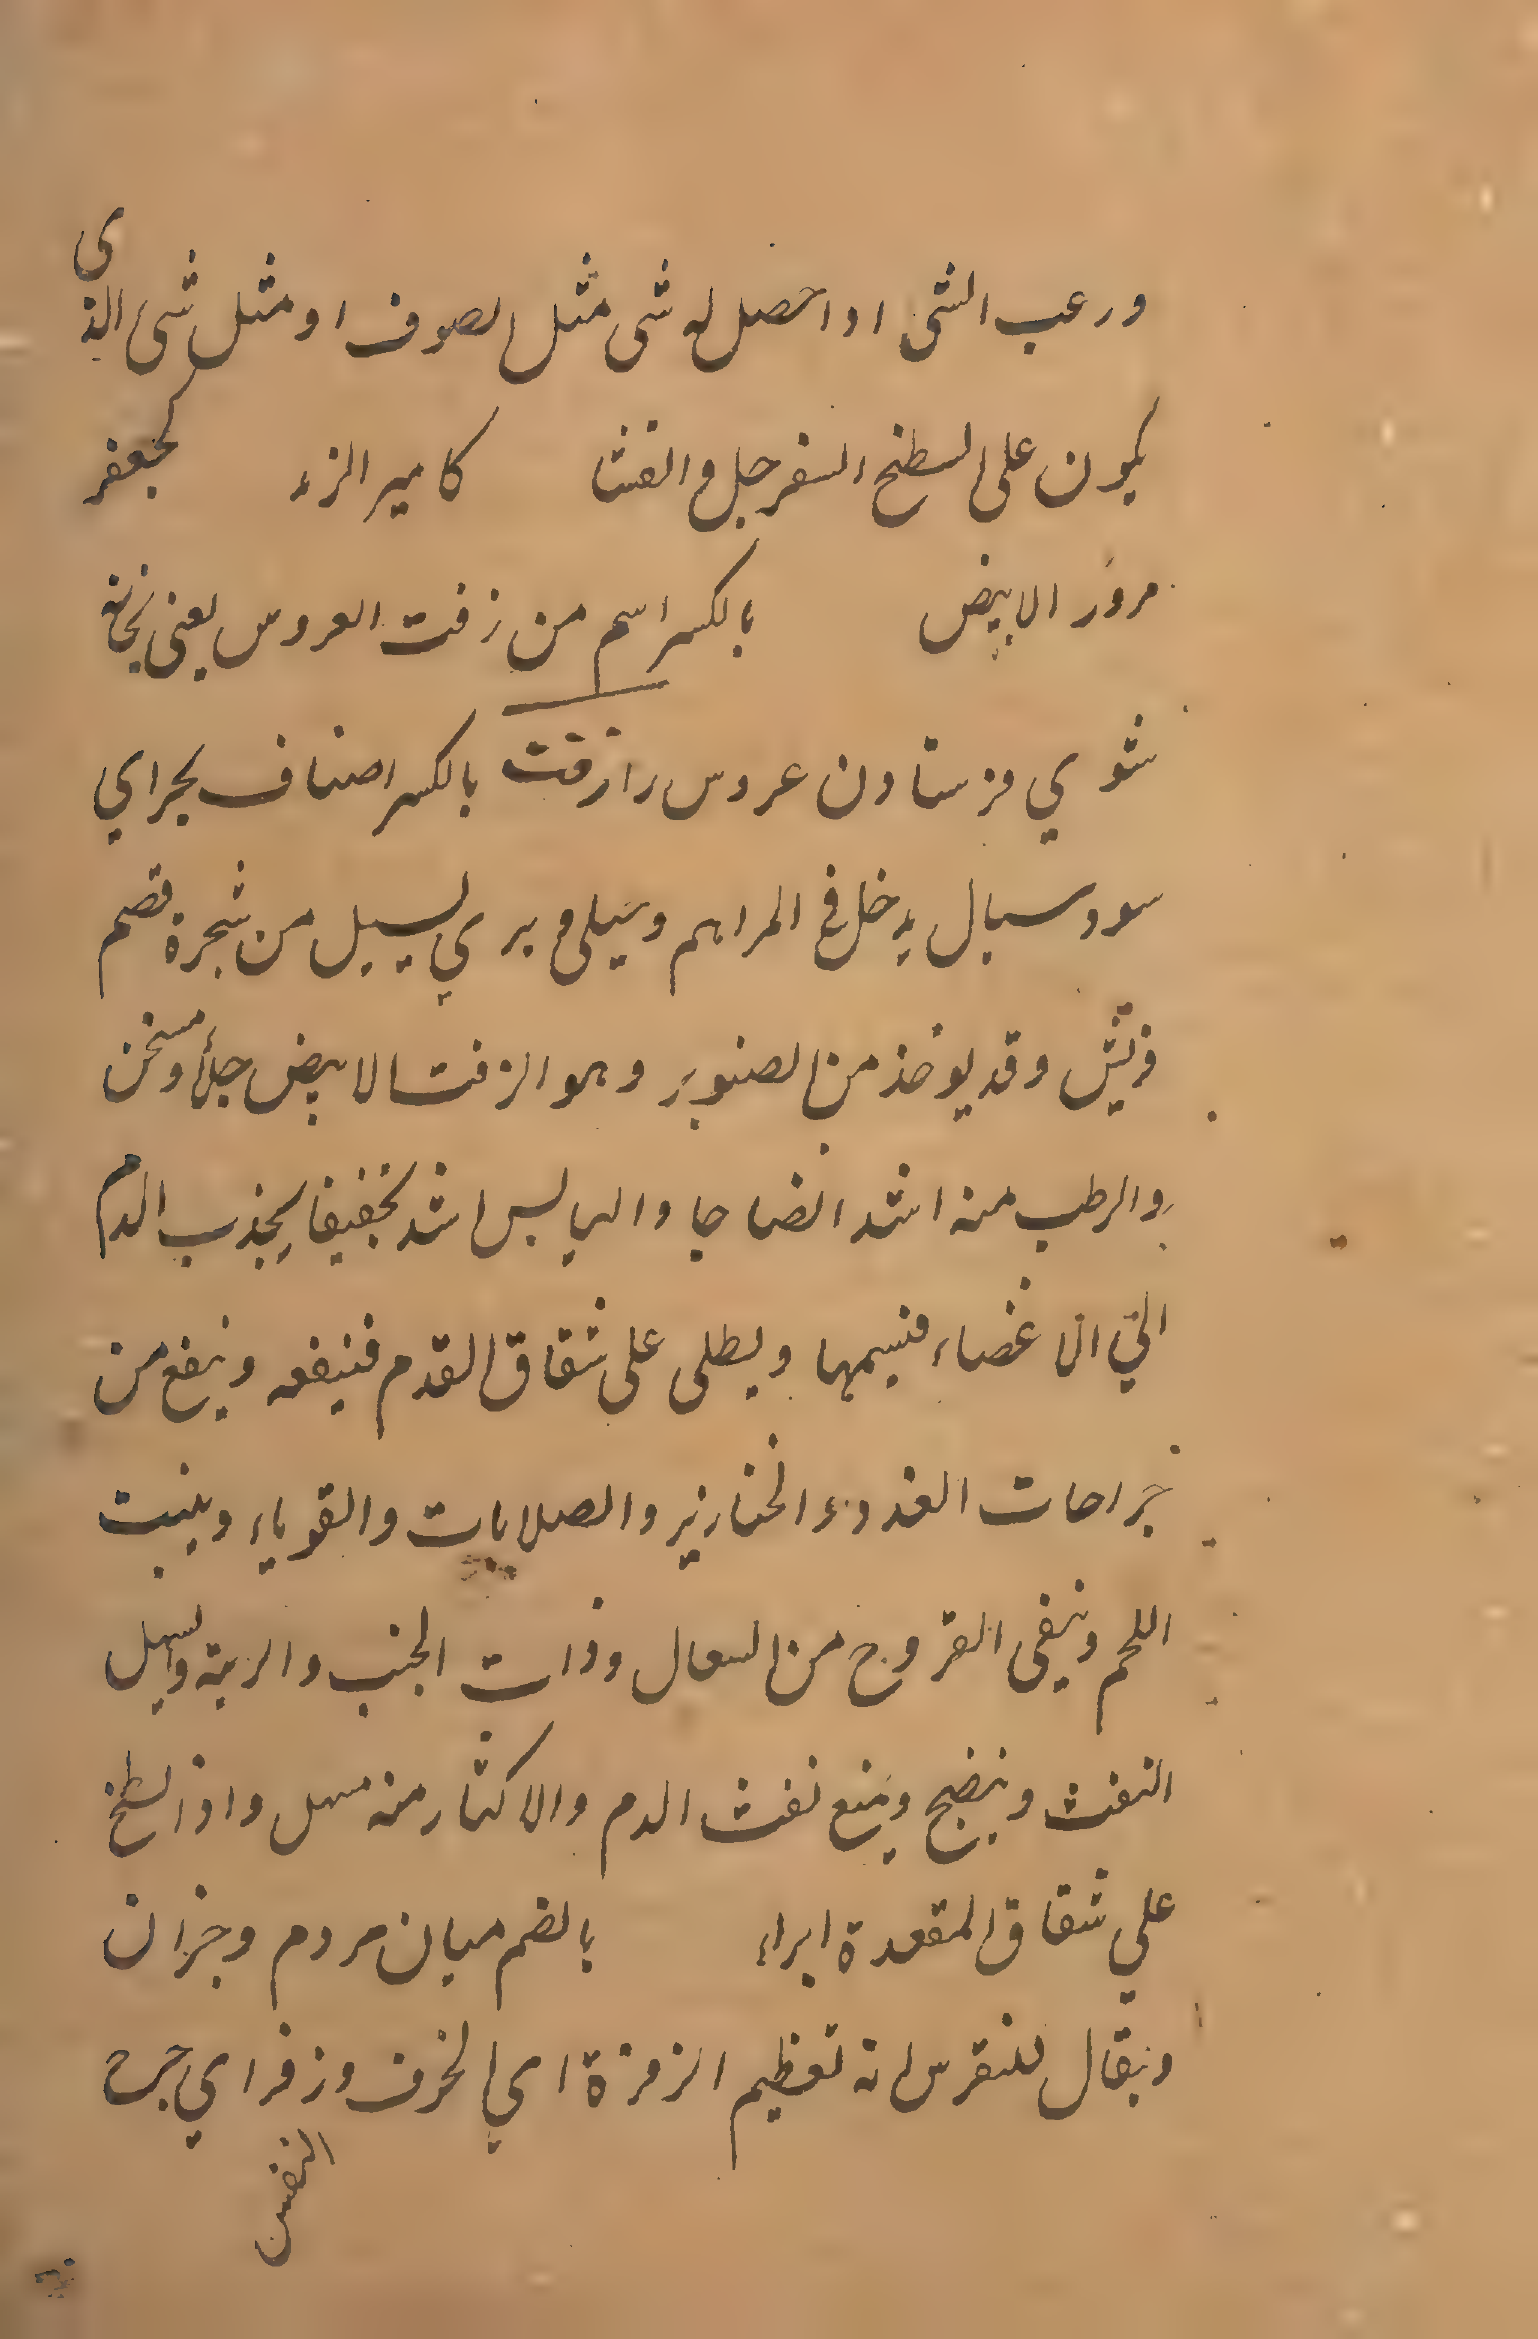 ورعب الشی اذا حصل له شی مثل الصوف او مثل شی الذی
یکون علی السطح السفرجل و القثا کامیر الزء کجعفر
مرور الابیض بالکسر اسم من زفت العروس یعنی بخانه
شوي فرستادن عروس را زفت بالکسر اصناف بحراي
سود وسیال یدخل فی المراهم وجبلی و بري یسیل من شجرة قضم
قریش وقد یوخذ من الصنوبر وهو الزفت الابیض جلأ ومسخن
والرطب منه اشد انضاجا والیابس اشد تجفیفا یجذب الدم
الي الاعضاء فنسمها ویطلی علی شقاق القدم فینفعه وینفع من
جراحات الغدد والخنازیر والصلابات والقوباء وینبت
اللحم وینقی القروح من السعال وذات الجنب والریة ویسهل
النفث وینضج ویمنع نفث الدم والاکثار منه مسهل واذا لطخ
علي شقاق المقعدة ابراء بالضم میان مردم وجزان
ویقال للنقرس انه تعظیم الزفزة اي الخرف وزفر اي خرج
النفس